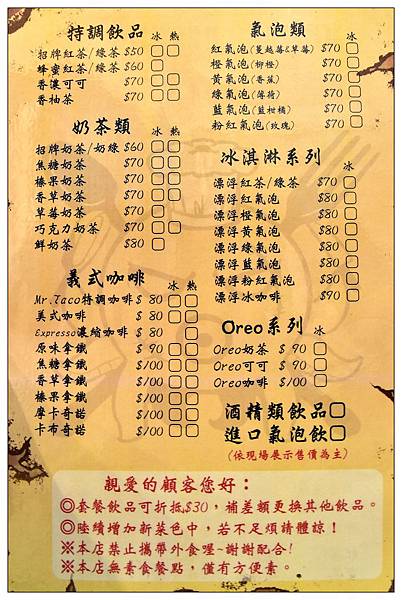 特調飲品 冰 熱
招牌紅茶/綠茶 $50
蜂蜜紅茶/綠茶 $60
香濃可可 $70
香柚茶 $70
奶茶類 冰 熱
招牌奶茶/奶綠 $60
焦糖奶茶 $70
榛果奶茶 $70
香草奶茶 $70
草莓奶茶 $70
巧克力奶茶 $70
鮮奶茶 $80
義式咖啡 冰 熱
Mr.Taco特調咖啡 $ 80
美式咖啡 $ 80
Expresso濃縮咖啡 $ 80
原味拿鐵 $ 90
焦糖拿鐵 $100
香草拿鐵 $100
榛果拿鐵 $100
摩卡奇諾 $100
卡布奇諾 $100
氣泡類 冰
紅氣泡(蔓越莓&草莓) $70
橙氣泡(柳橙) $70
黃氣泡(香蕉) $70
綠氣泡(薄荷) $70
藍氣泡(藍柑橘) $70
粉紅氣泡(玫瑰) $70
冰淇淋系列 冰
漂浮紅茶/綠茶 $70
漂浮紅氣泡 $80
漂浮橙氣泡 $80
漂浮黃氣泡 $80
漂浮綠氣泡 $80
漂浮藍氣泡 $80
漂浮粉紅氣泡 $80
漂浮冰咖啡 $90
Oreo系列 冰
Oreo奶茶 $ 90
Oreo可可 $ 90
Oreo咖啡 $100
酒精類飲品
進口氣泡飲
(依現場展示售價為主)
親愛的顧客您好：
◎套餐飲品可折抵$30，補差額更換其他飲品。
◎陸續增加新菜色中，若不足煩請體諒！
※本店禁止攜帶外食喔~謝謝配合!
※本店無素食餐點，僅有方便素。